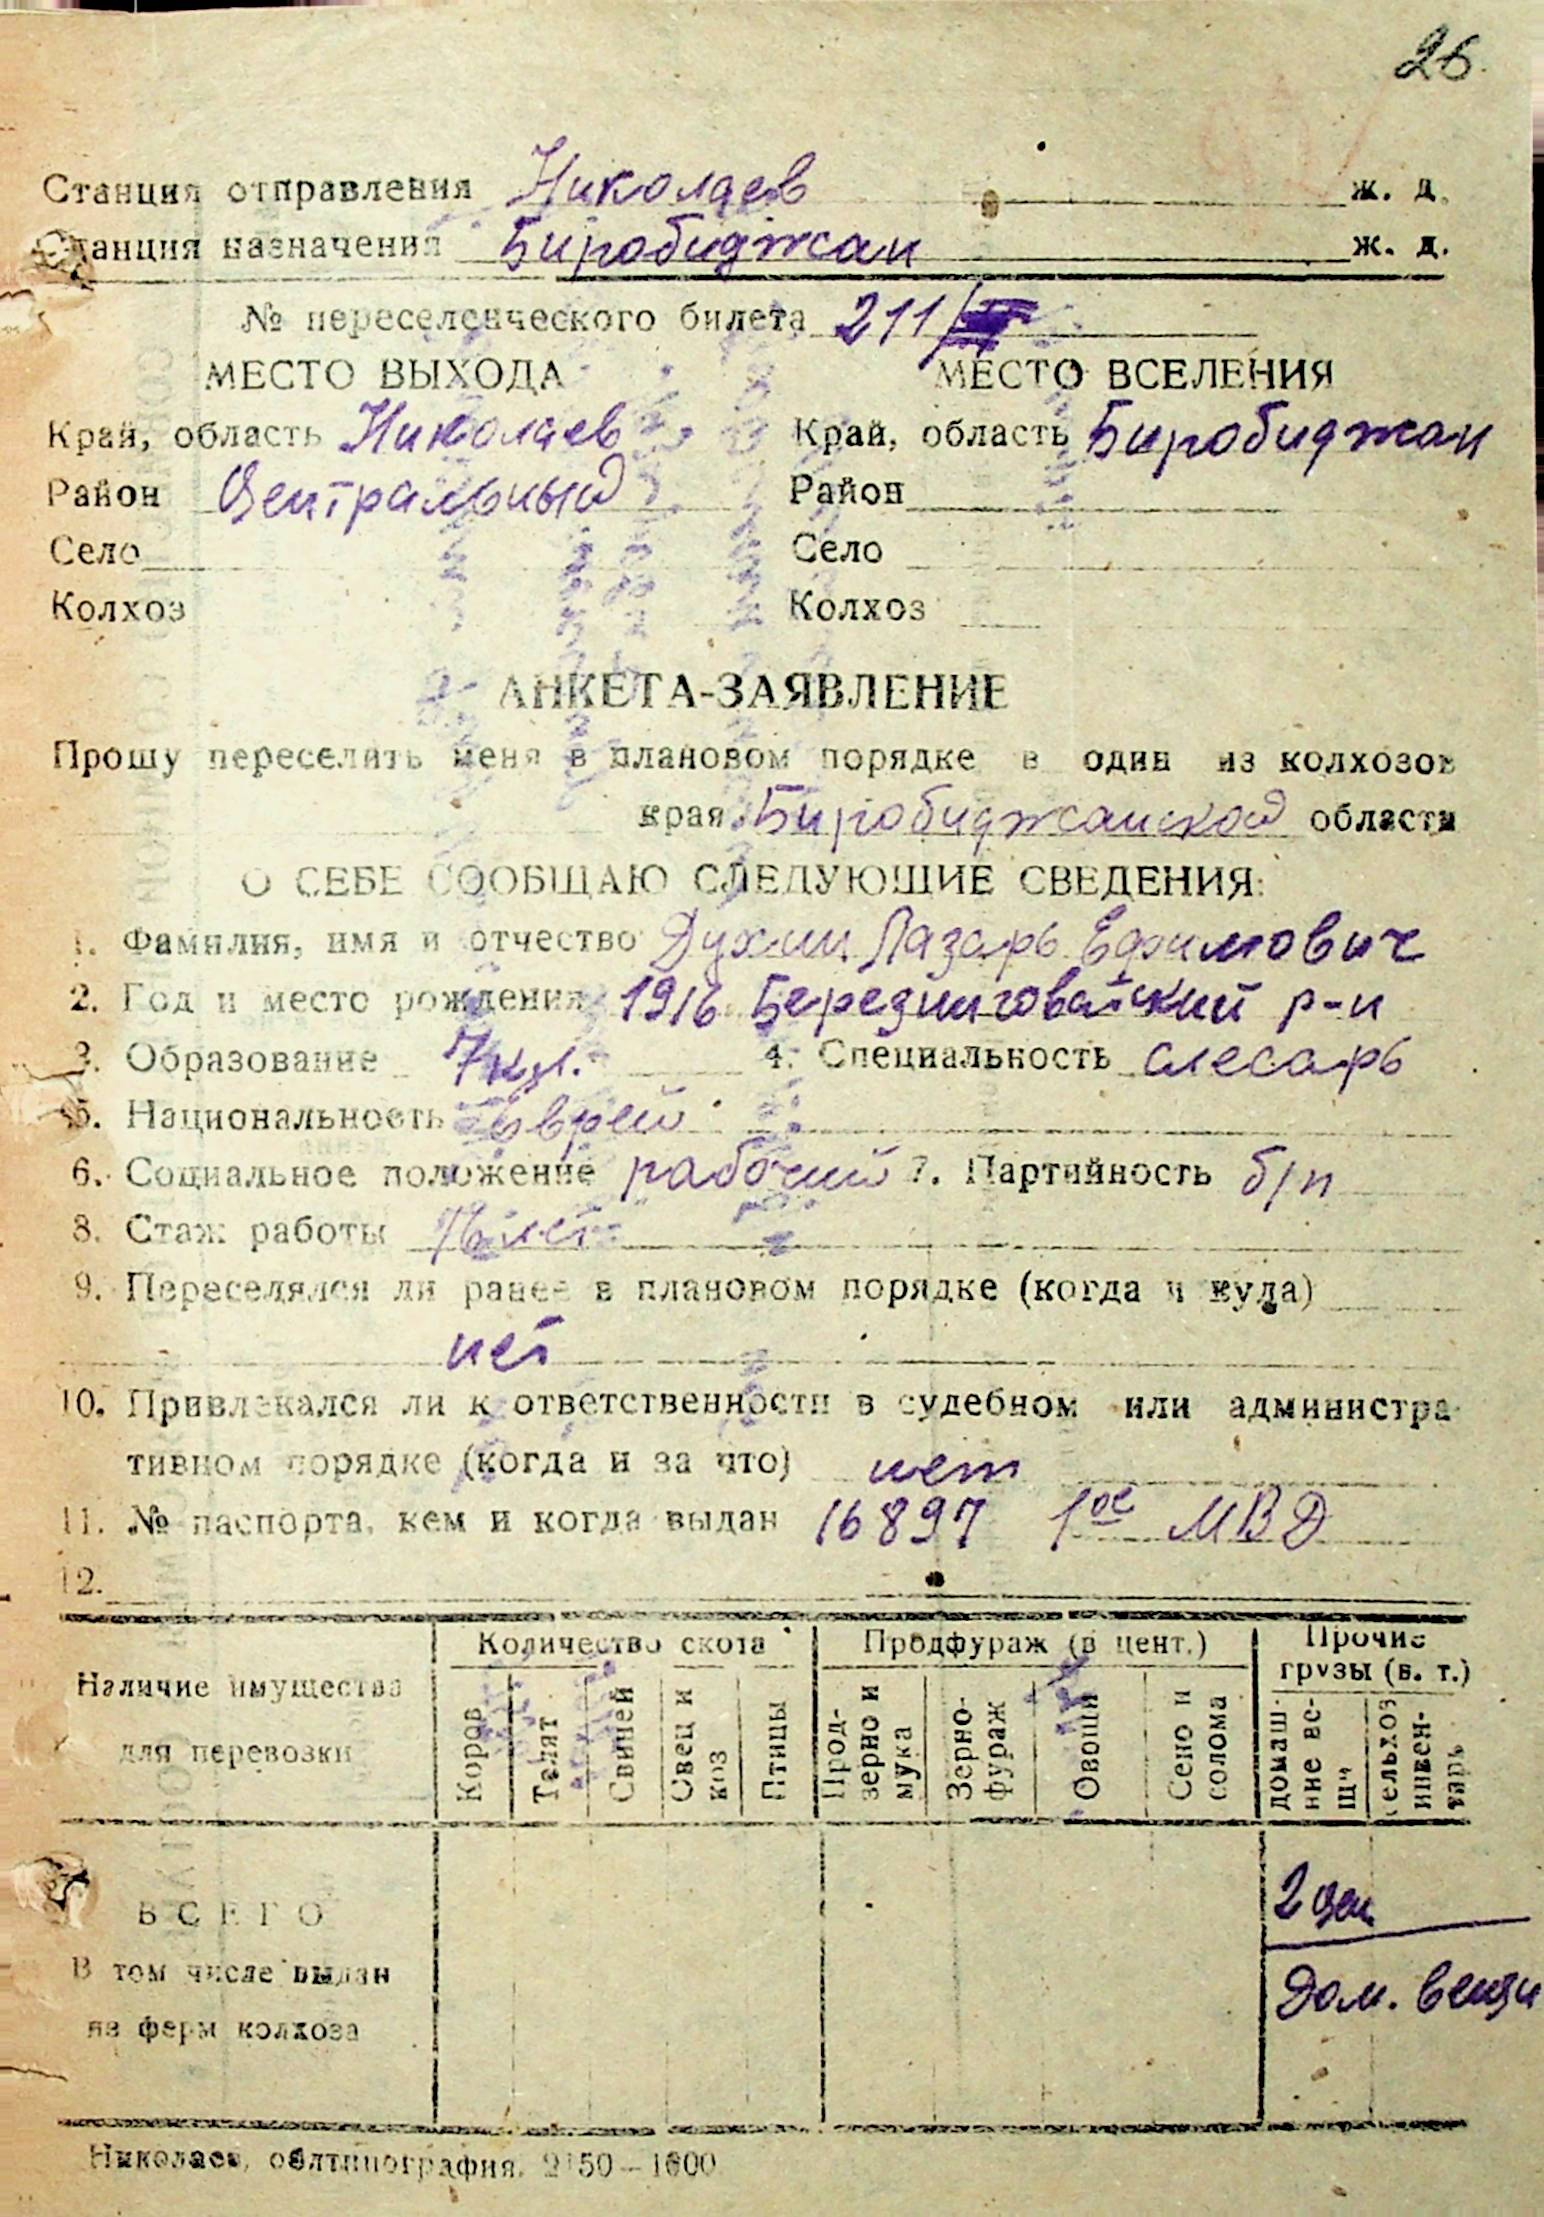 26.
Станция отправления Николаев ж. д.
Станция назначения Биробиджан ж. д.
№ переселенческого билета 211/
МЕСТО ВЫХОДА МЕСТО ВСЕЛЕНИЯ
Край, область Николаев Край, область Биробиджан
Район Центральный Район
Село Село
Колхоз Колхоз
АНКЕТА-ЗАЯВЛЕНИЕ
Прошу переселить меня в плановом порядке в один из колхозов
края Биробиджанской области
О СЕБЕ СООБЩАЮ СЛЕДУЮЩИЕ СВЕДЕНИЯ:
1. Фамилия, имя и отчество Духин Лазарь Ефимович
2. Год и место рождения 1916 Березниговайский р-н
3. Образование 7 кл. 4. Специальность слесарь
5. Национальность Еврей
6. Социальное положение рабочий 7. Партийность б/п
8. Стаж работы лет
9. Переселялся ли ранее в плановом порядке (когда и куда)
нет
10. Привлекался ли к ответственности в судебном или администра
тивном порядке (когда и за что) нет
11. № паспорта, кем и когда выдан 16897 1ое МВД
12.
Наличие имущества для перевозки
Количество скота
Продфураж (в цент.)
Прочие грузы (в. т.)
Коров
Телят
Свиней
Овец и коз
Птицы
Прод-зерно и мука
Зерно-фураж
Овощи
Сено и солома
домаш-ние ве-щи
сельхоз инвен-тарь
ВСЕГО 2 цен
В том числе выдан Дом. вещи
из ферм колхоза
Николаев, облтипография. 2150—1600